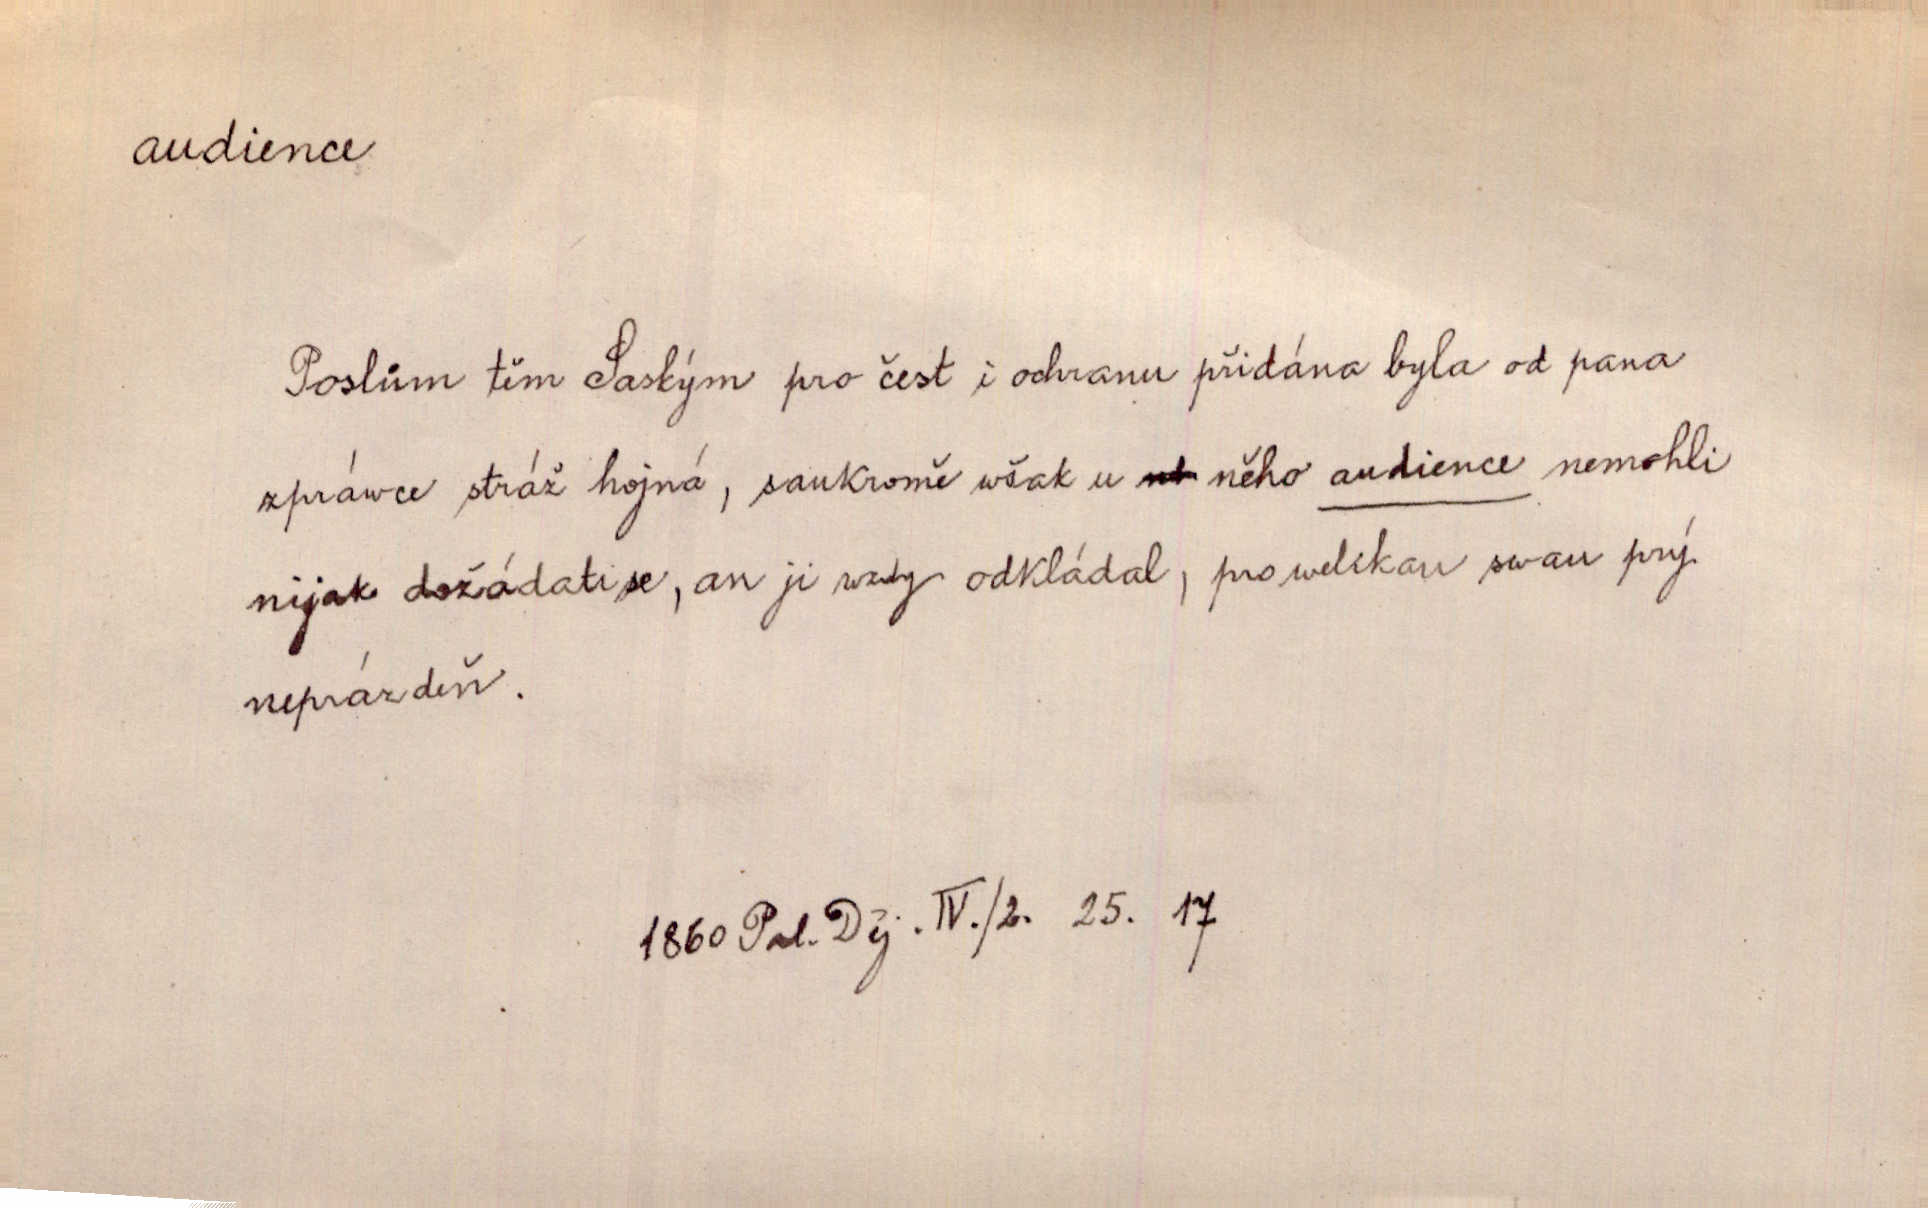 audience
Poslům těm Saským pro čest i ochranu přidána byla od pana
zpráwce stráž hojná, saukromě wšak u něho audience nemohli
nijak dožádati se, an ji wzdy odkládal, pro welikau swau prý
neprázdeň.
1860 Pal. Děj. IV./2. 25. 17